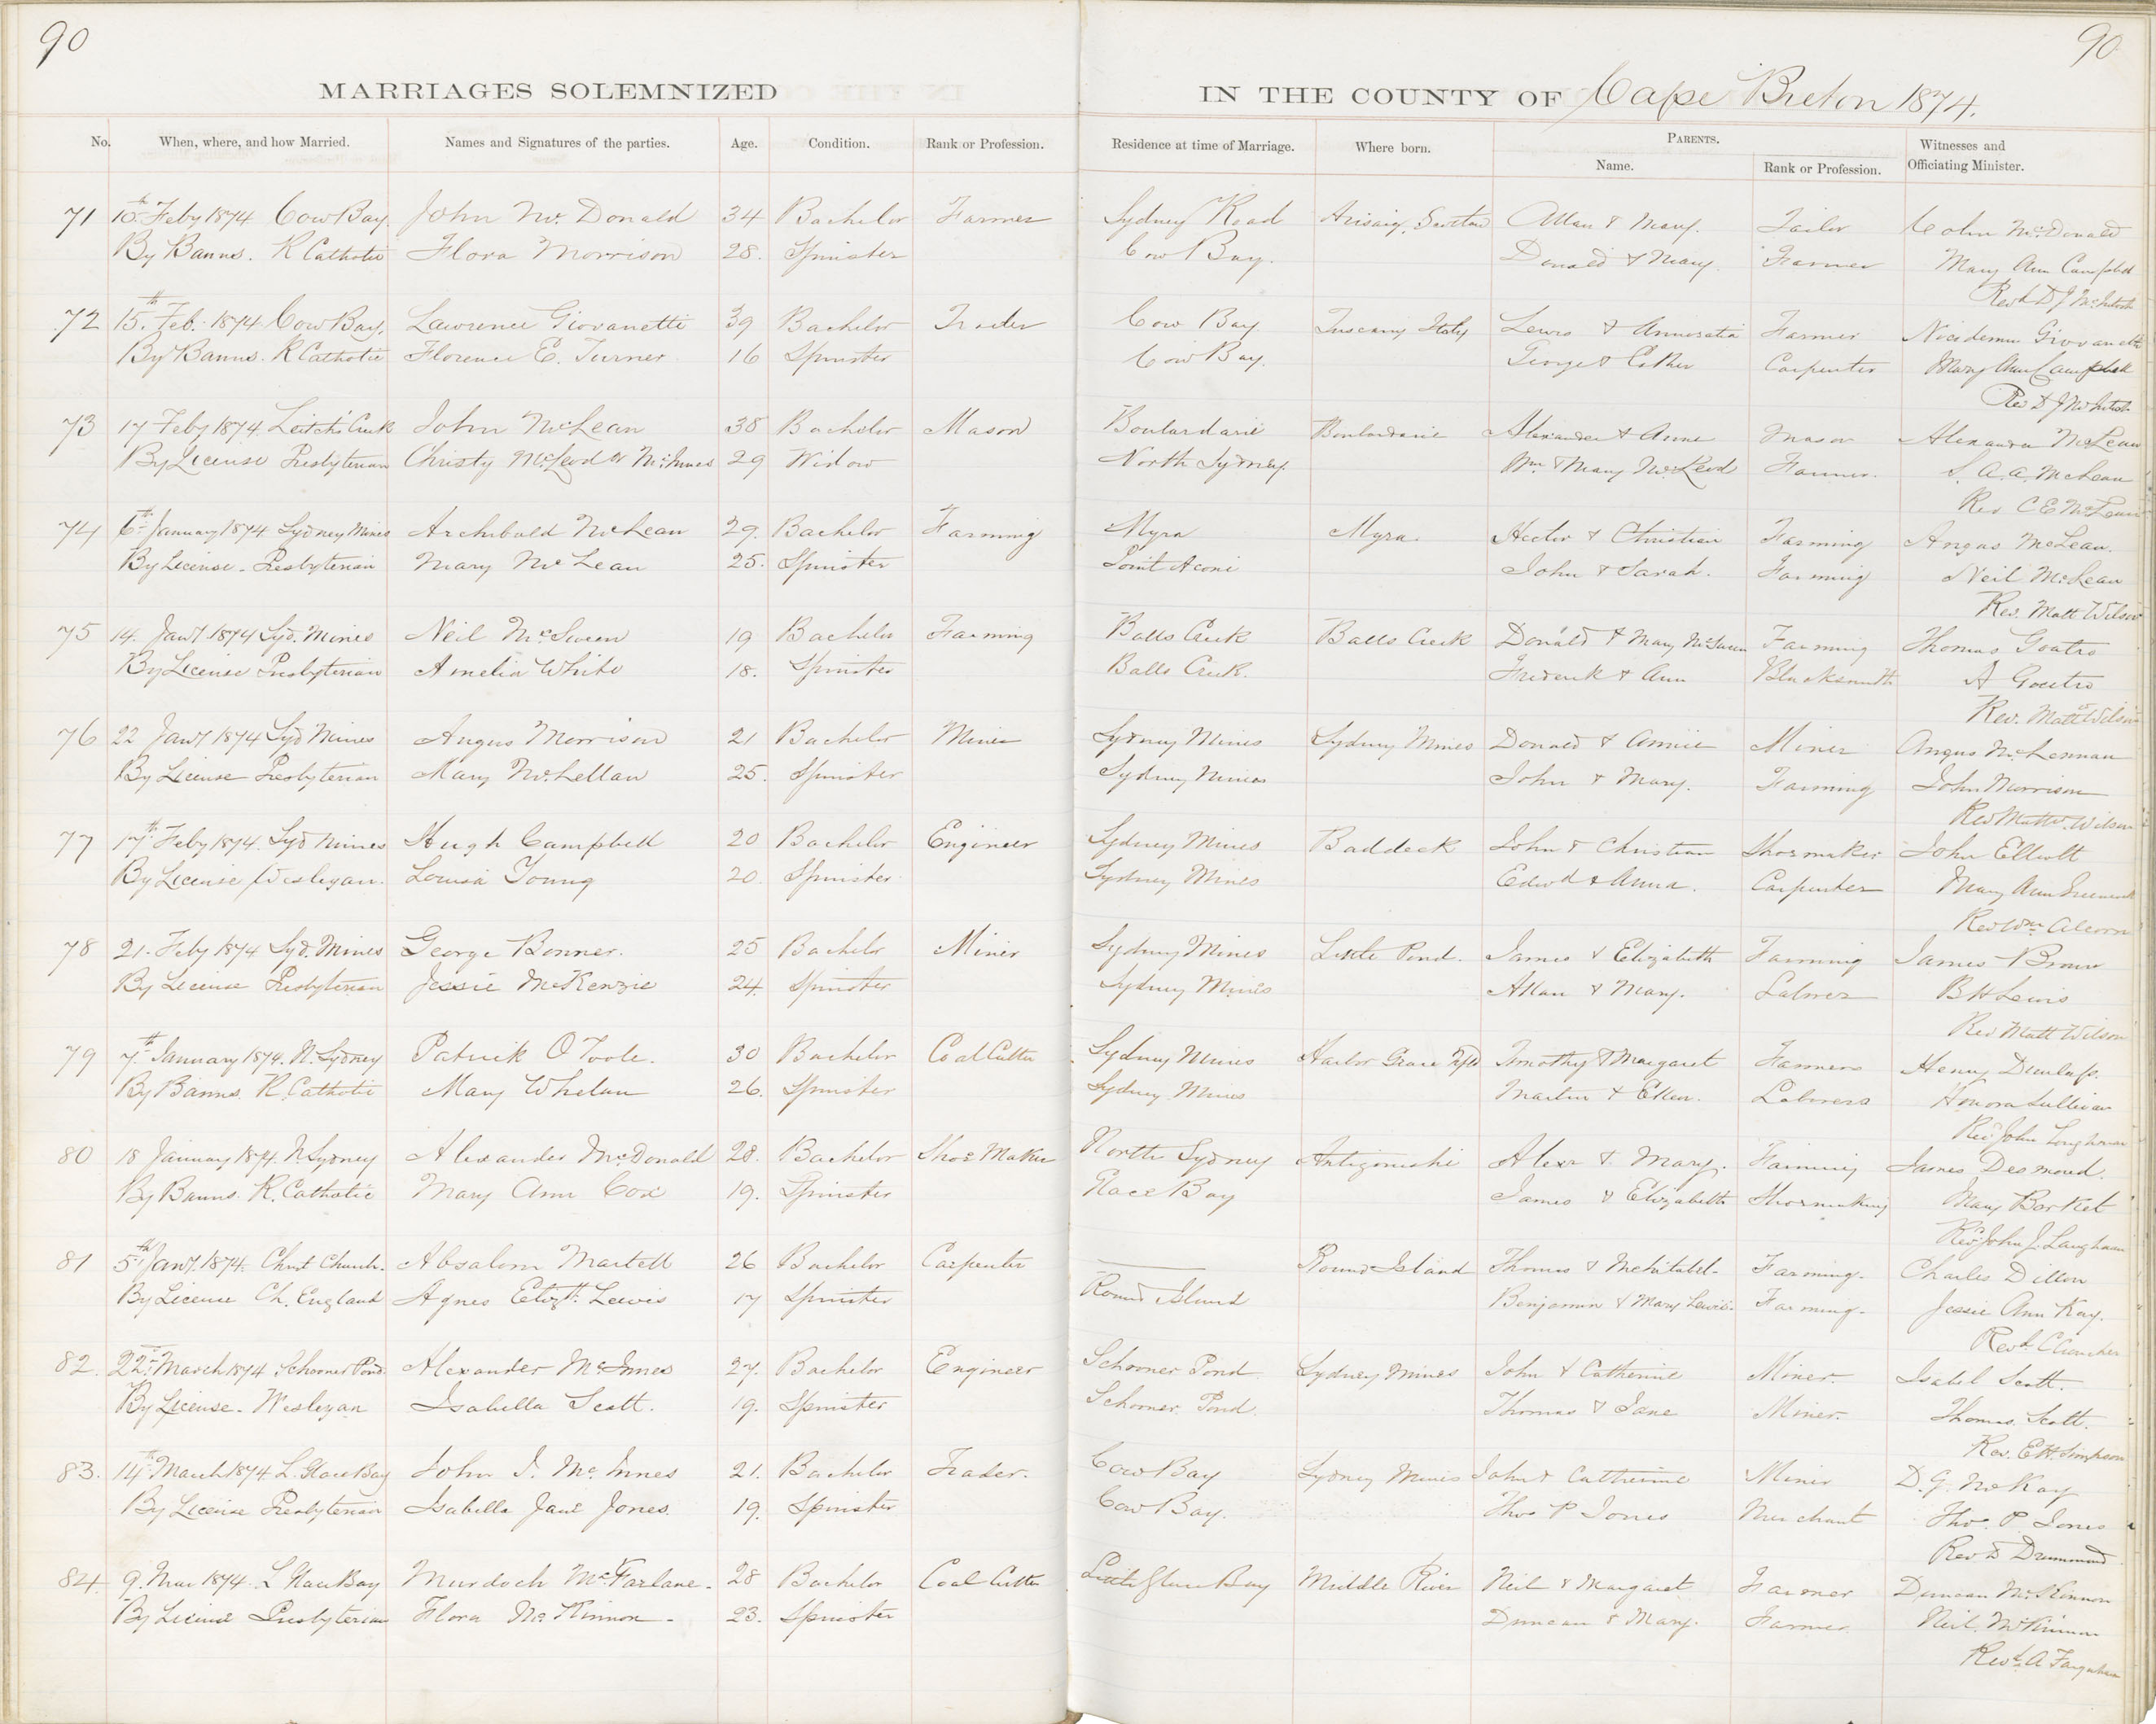 90
90
MARRIAGES SOLEMNIZED
IN THE COUNTY OF Cape Breton 1874.
No. When, where, and how Married. Names and Signatures of the parties. Age. Condition. Rank or Profession. Residence at time of Marriage. Where born. PARENTS. Name. Rank or Profession. Witnesses and Officiating Minister.
71 10th Feby 1874 Cow Bay. John McDonald 34 Bachelor Farmer Sydney Road Arisaig, Allan & Mary. Tailor McDonald
By Banns. R Catholic Flora Morrison 28. Spinster Cow Bay. Donald & Mary Farmer Mary Ann Campbell
Revd D J McIntosh
72 15th Feb. 1874 Cow Bay. Lawrence Giovanetti 39 Bachelor Trader Cow Bay Tuscany Italy Lewis & Farmer Giovanetti
By Banns. R Catholic Florence E. Turner 16 Spinster Cow Bay. George & Esther Carpenter Mary Ann Campbell
Rev D J McIntosh
73 17 Feby 1874 Leitch's Creek John McLean 38 Bachelor Mason Boulardarie Boulardarie Alexander & Anne Mason McLean
By License Presbyterian Christy McLeod or McInnes 29 Widow North Sydney. Wm & Mary McLeod Farmer. S. A. A. McLean
Rev C E McLean
74 6th January 1874 Sydney Mines Archibald McLean 29. Bachelor Farming Myra Myra. Hector & Christian Farming Angus McLean.
By License - Presbyterian Mary McLean 25. Spinster Point Aconi John & Sarah. Farming Neil McLean
Rev. Matt Wilson
75 14. Jany 1874 Syd. Mines Neil McSween 19 Bachelor Farming Balls Creek Balls Creek Donald & Mary McSween Farming Thomas Goutro
By License Presbyterian Amelia White 18. Spinster Balls Creek. Frederick & Ann Blacksmith A Goutro
Rev. Matt Wilson
76 22 Jany 1874 Syd Mines Angus Morrison 21 Bachelor Miner Sydney Mines Sydney Mines Donald & Annie Miner Angus McLennan
By License Presbyterian Mary McLellan 25. Spinster Sydney Mines John & Mary. Farming John Morrison
Rev Matthw Wilson
77 17th Feby 1874. Syd Mines Hugh Campbell 20 Bachelor Engineer Sydney Mines Baddeck John & Christian Shoemaker John Elliott
By License Wesleyan. Louisa Young 20. Spinster Sydney Mines Edwd & Anna. Carpenter Mary Ann
Rev Wm Alcorn
78 21. Feby 1874 Syd. Mines George Bonner. 25 Bachelor Miner Sydney Mines Little Pond. James & Elizabeth Farming James Brown
By License Presbyterian Jessie McKenzie 24. Spinster Sydney Mines Allan & Mary. Labrer B H Lewis
Rev Matt Wilson
79 7th January 1874. N. Sydney Patrick O'Toole. 30 Bachelor Coal Cutter Sydney Mines Harbor Grace Nfld Timothy & Margaret Farmers Henry Dunlap.
By Banns. R. Catholic Mary Whelan 26. Spinster Sydney Mines Martin & Ellen. Labrers Honora Sullivan
Revd John Loughman
80 18 January 1874. N. Sydney Alexander McDonald 28. Bachelor Shoe Maker North Sydney Antigonishe Alexr & Mary. Farming James Desmond.
By Banns. R. Catholic Mary Ann Cox 19. Spinster Glace Bay James & Elizabeth Shoemaking Mary Barket
Revd John J.
81 5th Jany. 1874. Christ Church. Absalom Martell 26 Bachelor Carpenter Round Island Thomas & Mehitabel. Farming. Charles Dillon
By License Ch. England Agnes Elizth. Lewis 17 Spinster Round Island Benjamin & Mary Lewis. Farming. Jessie Ann Kay.
Revd. C Croucher
82. 22d March 1874 Schooner Pond. Alexander McInnes 27. Bachelor Engineer Schooner Pond Sydney Mines John & Catherine Miner. Isabel Scott.
By License. Wesleyan Isabella Scott. 19. Spinster Schooner Pond. Thomas & Jane Miner. Thomas Scott.
Rev. E H Simpson
83. 14th March 1874 L. Glace Bay John J. McInnes 21. Bachelor Trader. Cow Bay Sydney Mines John & Catherine Miner D. G. McKay
By License Presbyterian Isabella Jane Jones. 19. Spinster Cow Bay. Thos P Jones Merchant Thos. P Jones
Rev D Drummond
84 9. Mar 1874 L Glace Bay Murdoch McFarlane. 28 Bachelor Coal Cutter Little Glace Bay Middle River Neil & Margaret Farmer Duncan McKinnon
By License Presbyterian Flora McKinnon. 23. Spinster Duncan & Mary. Farmer. Neil McKinnon
Revd. A Farquharson